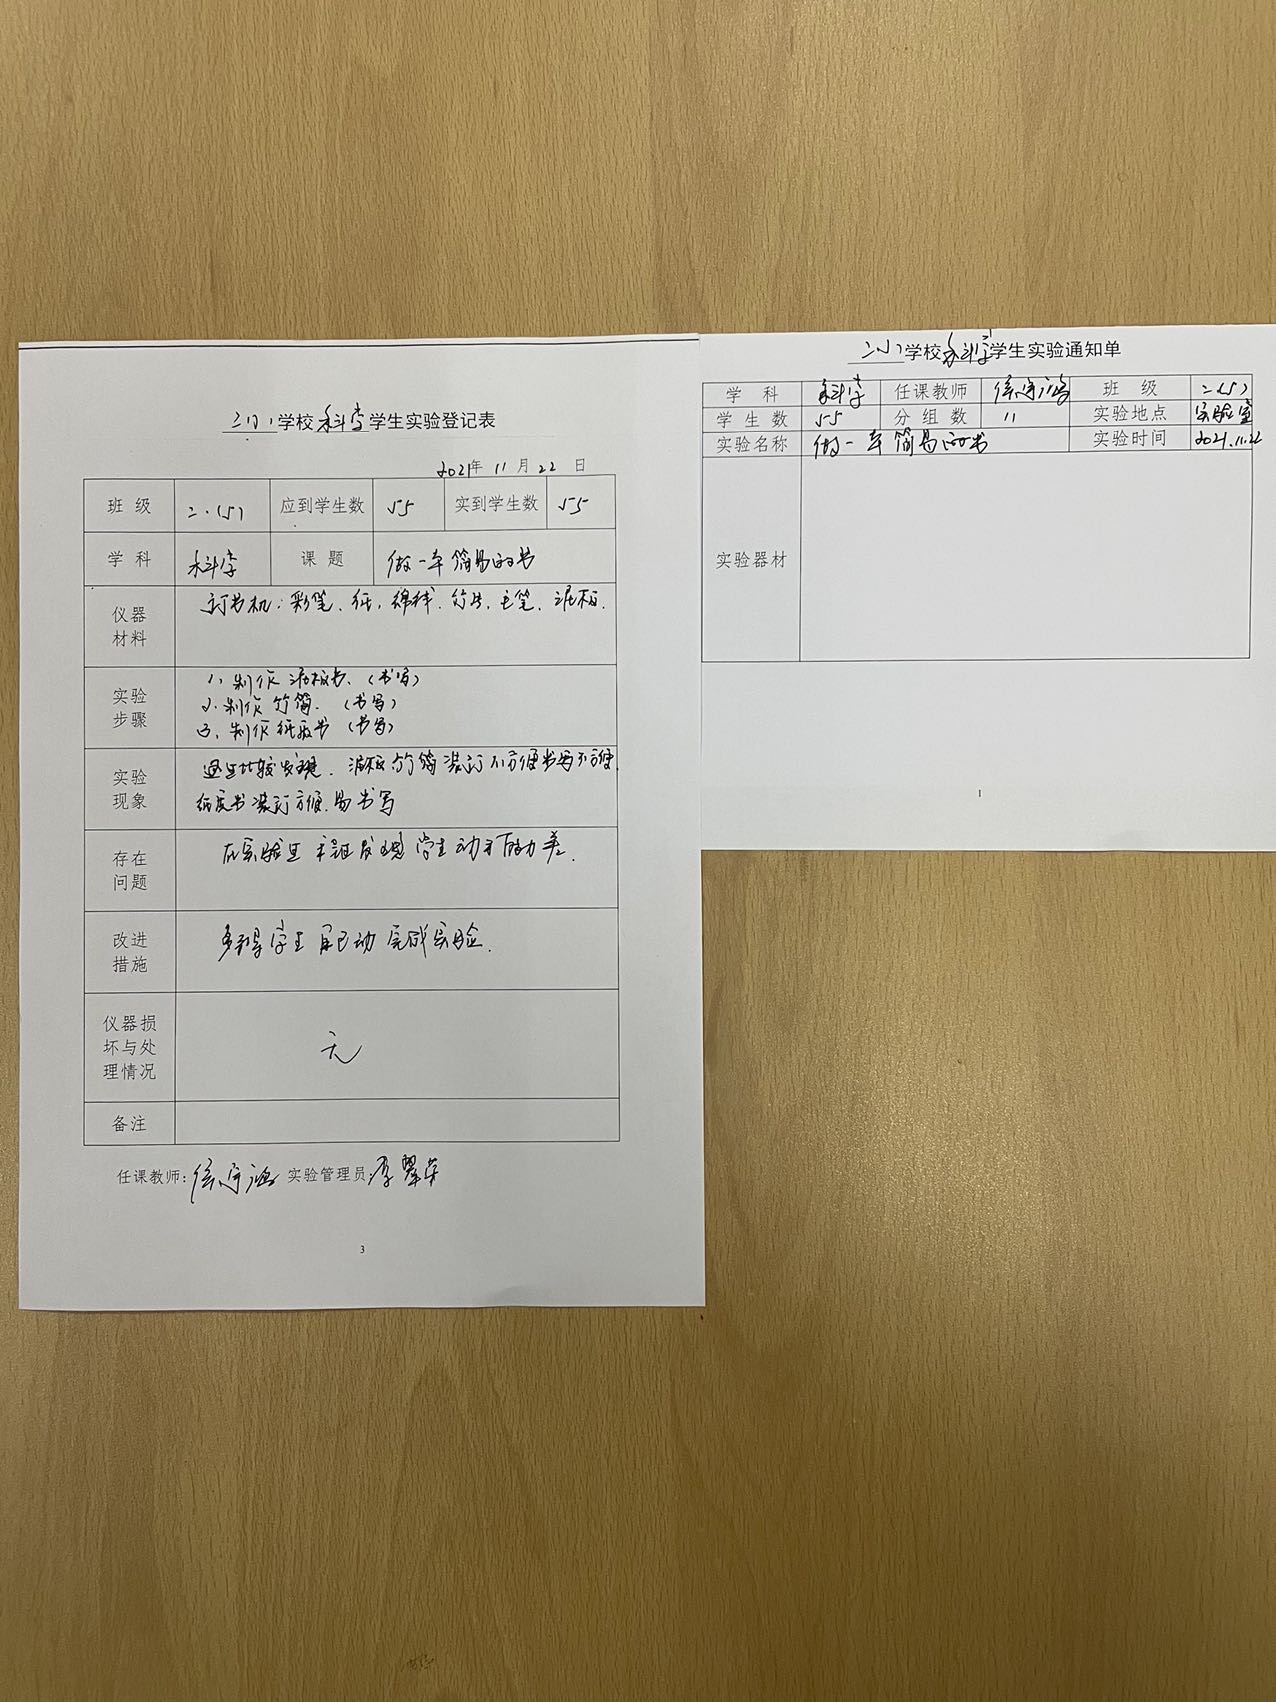 二小学校科学学生实验登记表
2021年 11 月 22 日
班 级 二.(5) 应到学生数 55 实到学生数 55
学 科 科学 课 题 做一本简易的书
仪器材料 订书机、彩笔、纸、棉线、竹片、毛笔、泥板.
实验步骤 1、制作泥板书、(书写)
2、制作竹简. (书写)
3、制作纸质书 (书写)
实验现象 通过比较发现. 泥板竹简装订不方便书写不方便.
纸质书装订方便.易书写
存在问题 在实验过程发现学生动手能力差.
改进措施 多让学生自己动完成实验.
仪器损坏与处理情况 无
备注
任课教师: 实验管理员:
3
二小学校科学学生实验通知单
学 科 科学 任课教师 班 级 二(5)
学 生 数 55 分 组 数 11 实验地点 实验室
实验名称 做一本简易的书 实验时间 2021.11.22
实验器材
1